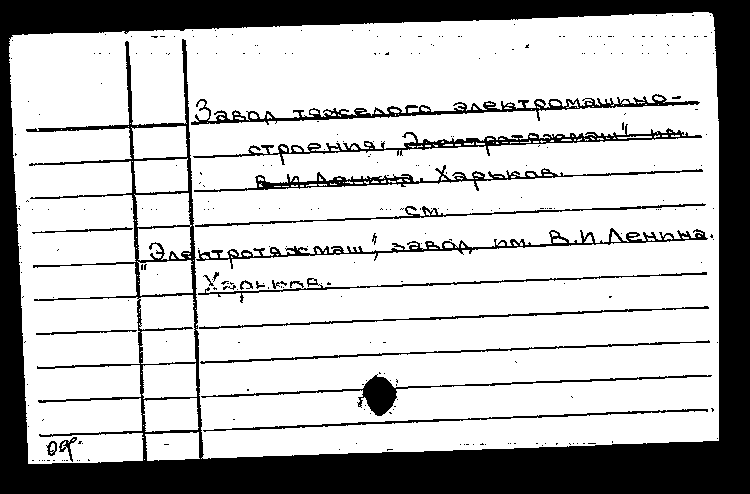 Завод тяжелого электромашино-
строения "Электротяжмаш" им.
В.И.Ленина. Харьков.
см.
"Электротяжмаш", завод им. В.И.Ленина.
Харьков.